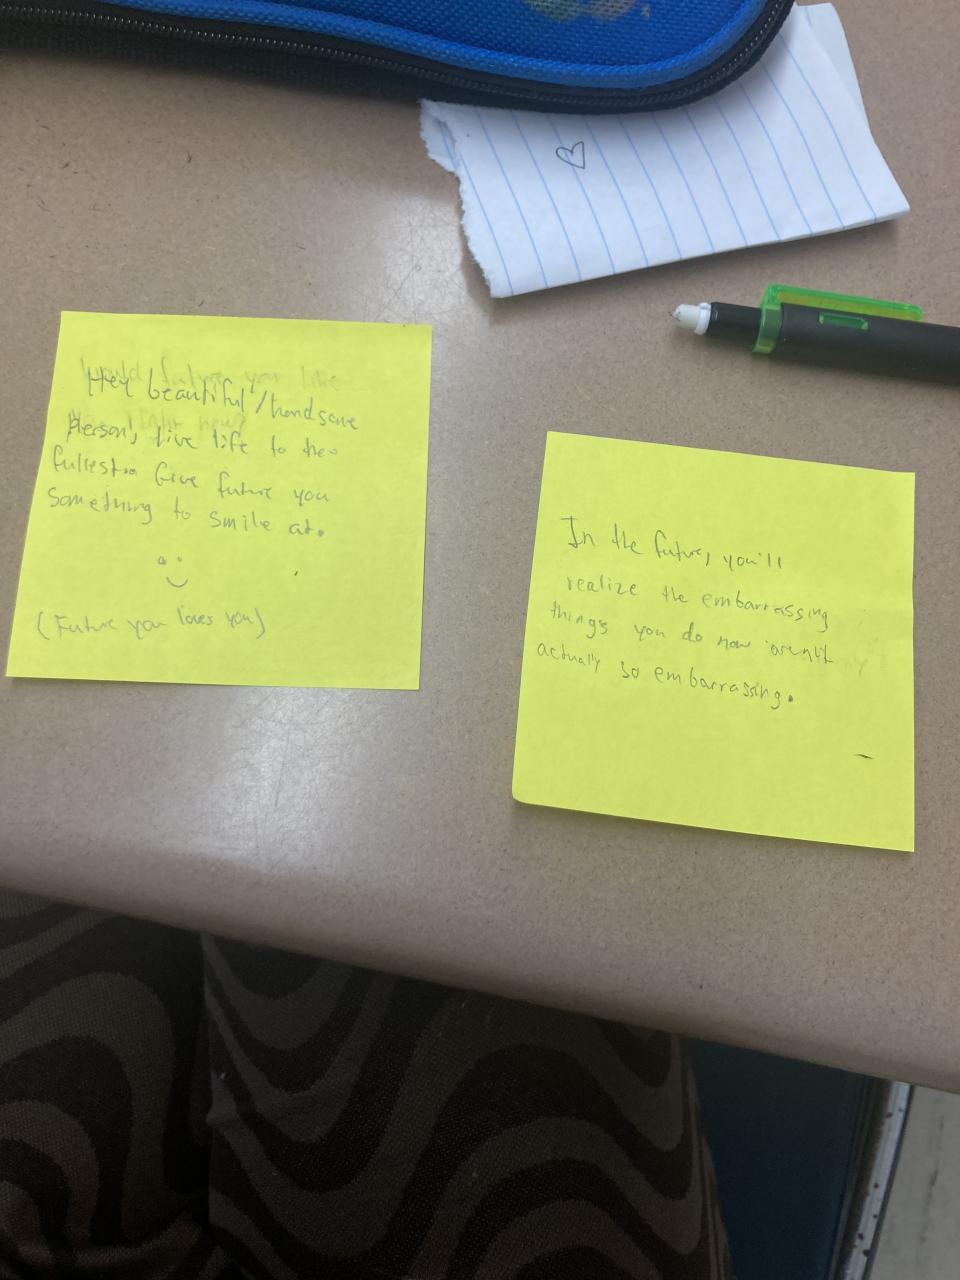 Would future you like
Hey beautiful/handsome
person, live life to the
fullest. Give future you
something to smile at.
(Future you loves you)
In the future, you'll
realize the embarrassing
things you do now aren't
actually so embarrassing.